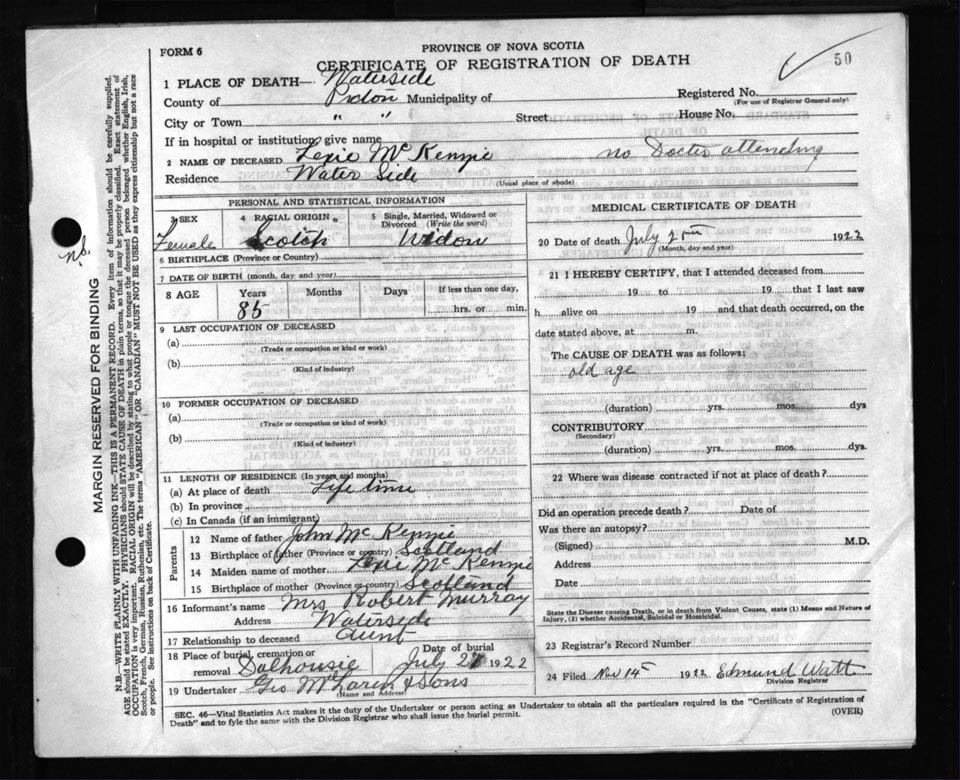 FORM 6
PROVINCE OF NOVA SCOTIA
CERTIFICATE OF REGISTRATION OF DEATH
50
1 PLACE OF DEATH— Waterside
County of Pictou Municipality of
Registered No.
(For use of Registrar General only)
City or Town " " Street House No.
If in hospital or institution, give name
2 NAME OF DECEASED Lexie McKenzie no Doctor attending
Residence Water Side
(Usual place of abode)
PERSONAL AND STATISTICAL INFORMATION
3 SEX Female
4 RACIAL ORIGIN Scotch
5 Single, Married, Widowed or Divorced (Write the word) Widow
6 BIRTHPLACE (Province or Country)
7 DATE OF BIRTH (month, day and year)
8 AGE Years Months Days If less than one day,
85 hrs. or min.
9 LAST OCCUPATION OF DECEASED
(a)
(Trade or occupation or kind or work)
(b)
(Kind of industry)
10 FORMER OCCUPATION OF DECEASED
(a)
(Trade or occupation or kind of work)
(b)
(Kind of Industry)
11 LENGTH OF RESIDENCE (In years and months)
(a) At place of death Life time
(b) In province
(c) In Canada (if an immigrant)
Parents
12 Name of father John McKenzie
13 Birthplace of father (Province or country) Scotland
14 Maiden name of mother Lexie McKenzie
15 Birthplace of mother (Province or country) Scotland
16 Informant's name Mrs Robert Murray
Address Waterside
17 Relationship to deceased Aunt
18 Place of burial, cremation or removal Dalhousie
Date of burial July 27 1922
19 Undertaker Geo McLaren & Sons
(Name and Address)
MEDICAL CERTIFICATE OF DEATH
20 Date of death July 25th 1922
(Month, day and year)
21 I HEREBY CERTIFY, that I attended deceased from
19 to 19 that I last saw
h alive on 19 and that death occurred, on the
date stated above, at m.
The CAUSE OF DEATH was as follows:
old age
(duration) yrs. mos. dys
CONTRIBUTORY
(Secondary)
(duration) yrs. mos. dys.
22 Where was disease contracted if not at place of death?
Did an operation precede death? Date of
Was there an autopsy?
(Signed) M.D.
Address
Date
State the Disease causing Death, or in death from Violent Causes, state (1) Means and Nature of
Injury, (2) whether Accidental, Suicidal or Homicidal.
23 Registrar's Record Number
24 Filed Nov 14th 1922 Edmund Watt
Division Registrar
SEC. 46—Vital Statistics Act makes it the duty of the Undertaker or person acting as Undertaker to obtain all the particulars required in the "Certificate of Registration of
Death" and to fyle the same with the Division Registrar who shall issue the burial permit.
(OVER)
MARGIN RESERVED FOR BINDING
N.B.—WRITE PLAINLY WITH UNFADING INK—THIS IS A PERMANENT RECORD. Every item of information should be carefully supplied.
AGE should be stated EXACTLY. PHYSICIANS should STATE CAUSE OF DEATH in plain terms, so that it may be properly classified. Exact statement of
OCCUPATION is very important. RACIAL ORIGIN will be described by stating to what people or tongue the deceased person belonged whether English, Irish,
Scotch, French, German, Russian, Ruthenian, etc. The terms "AMERICAN" OR "CANADIAN" MUST NOT BE USED as they express citizenship but not a race
or people. See instructions on back of Certificate.